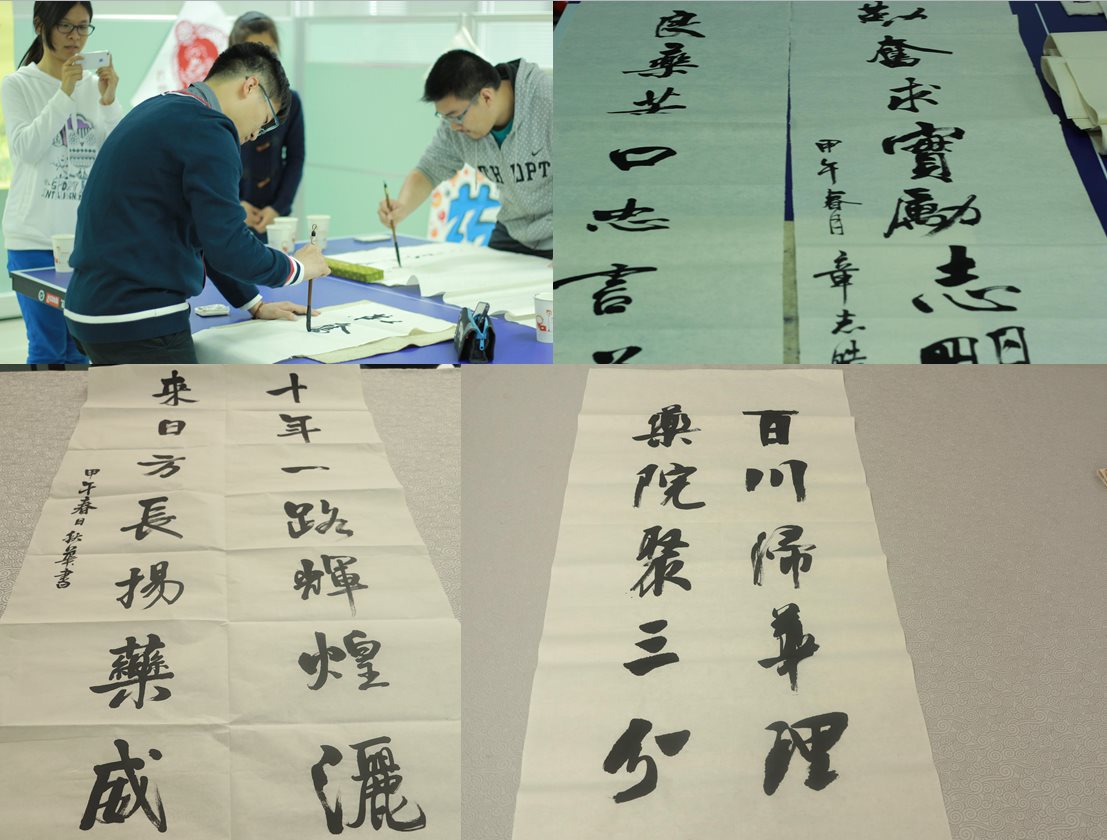 奮求實勵志明
甲午春月 章志皓
良藥苦口忠言
十年一路輝煌灑
來日方長揚藥威
甲午春日
百川歸華理
藥院聚三分